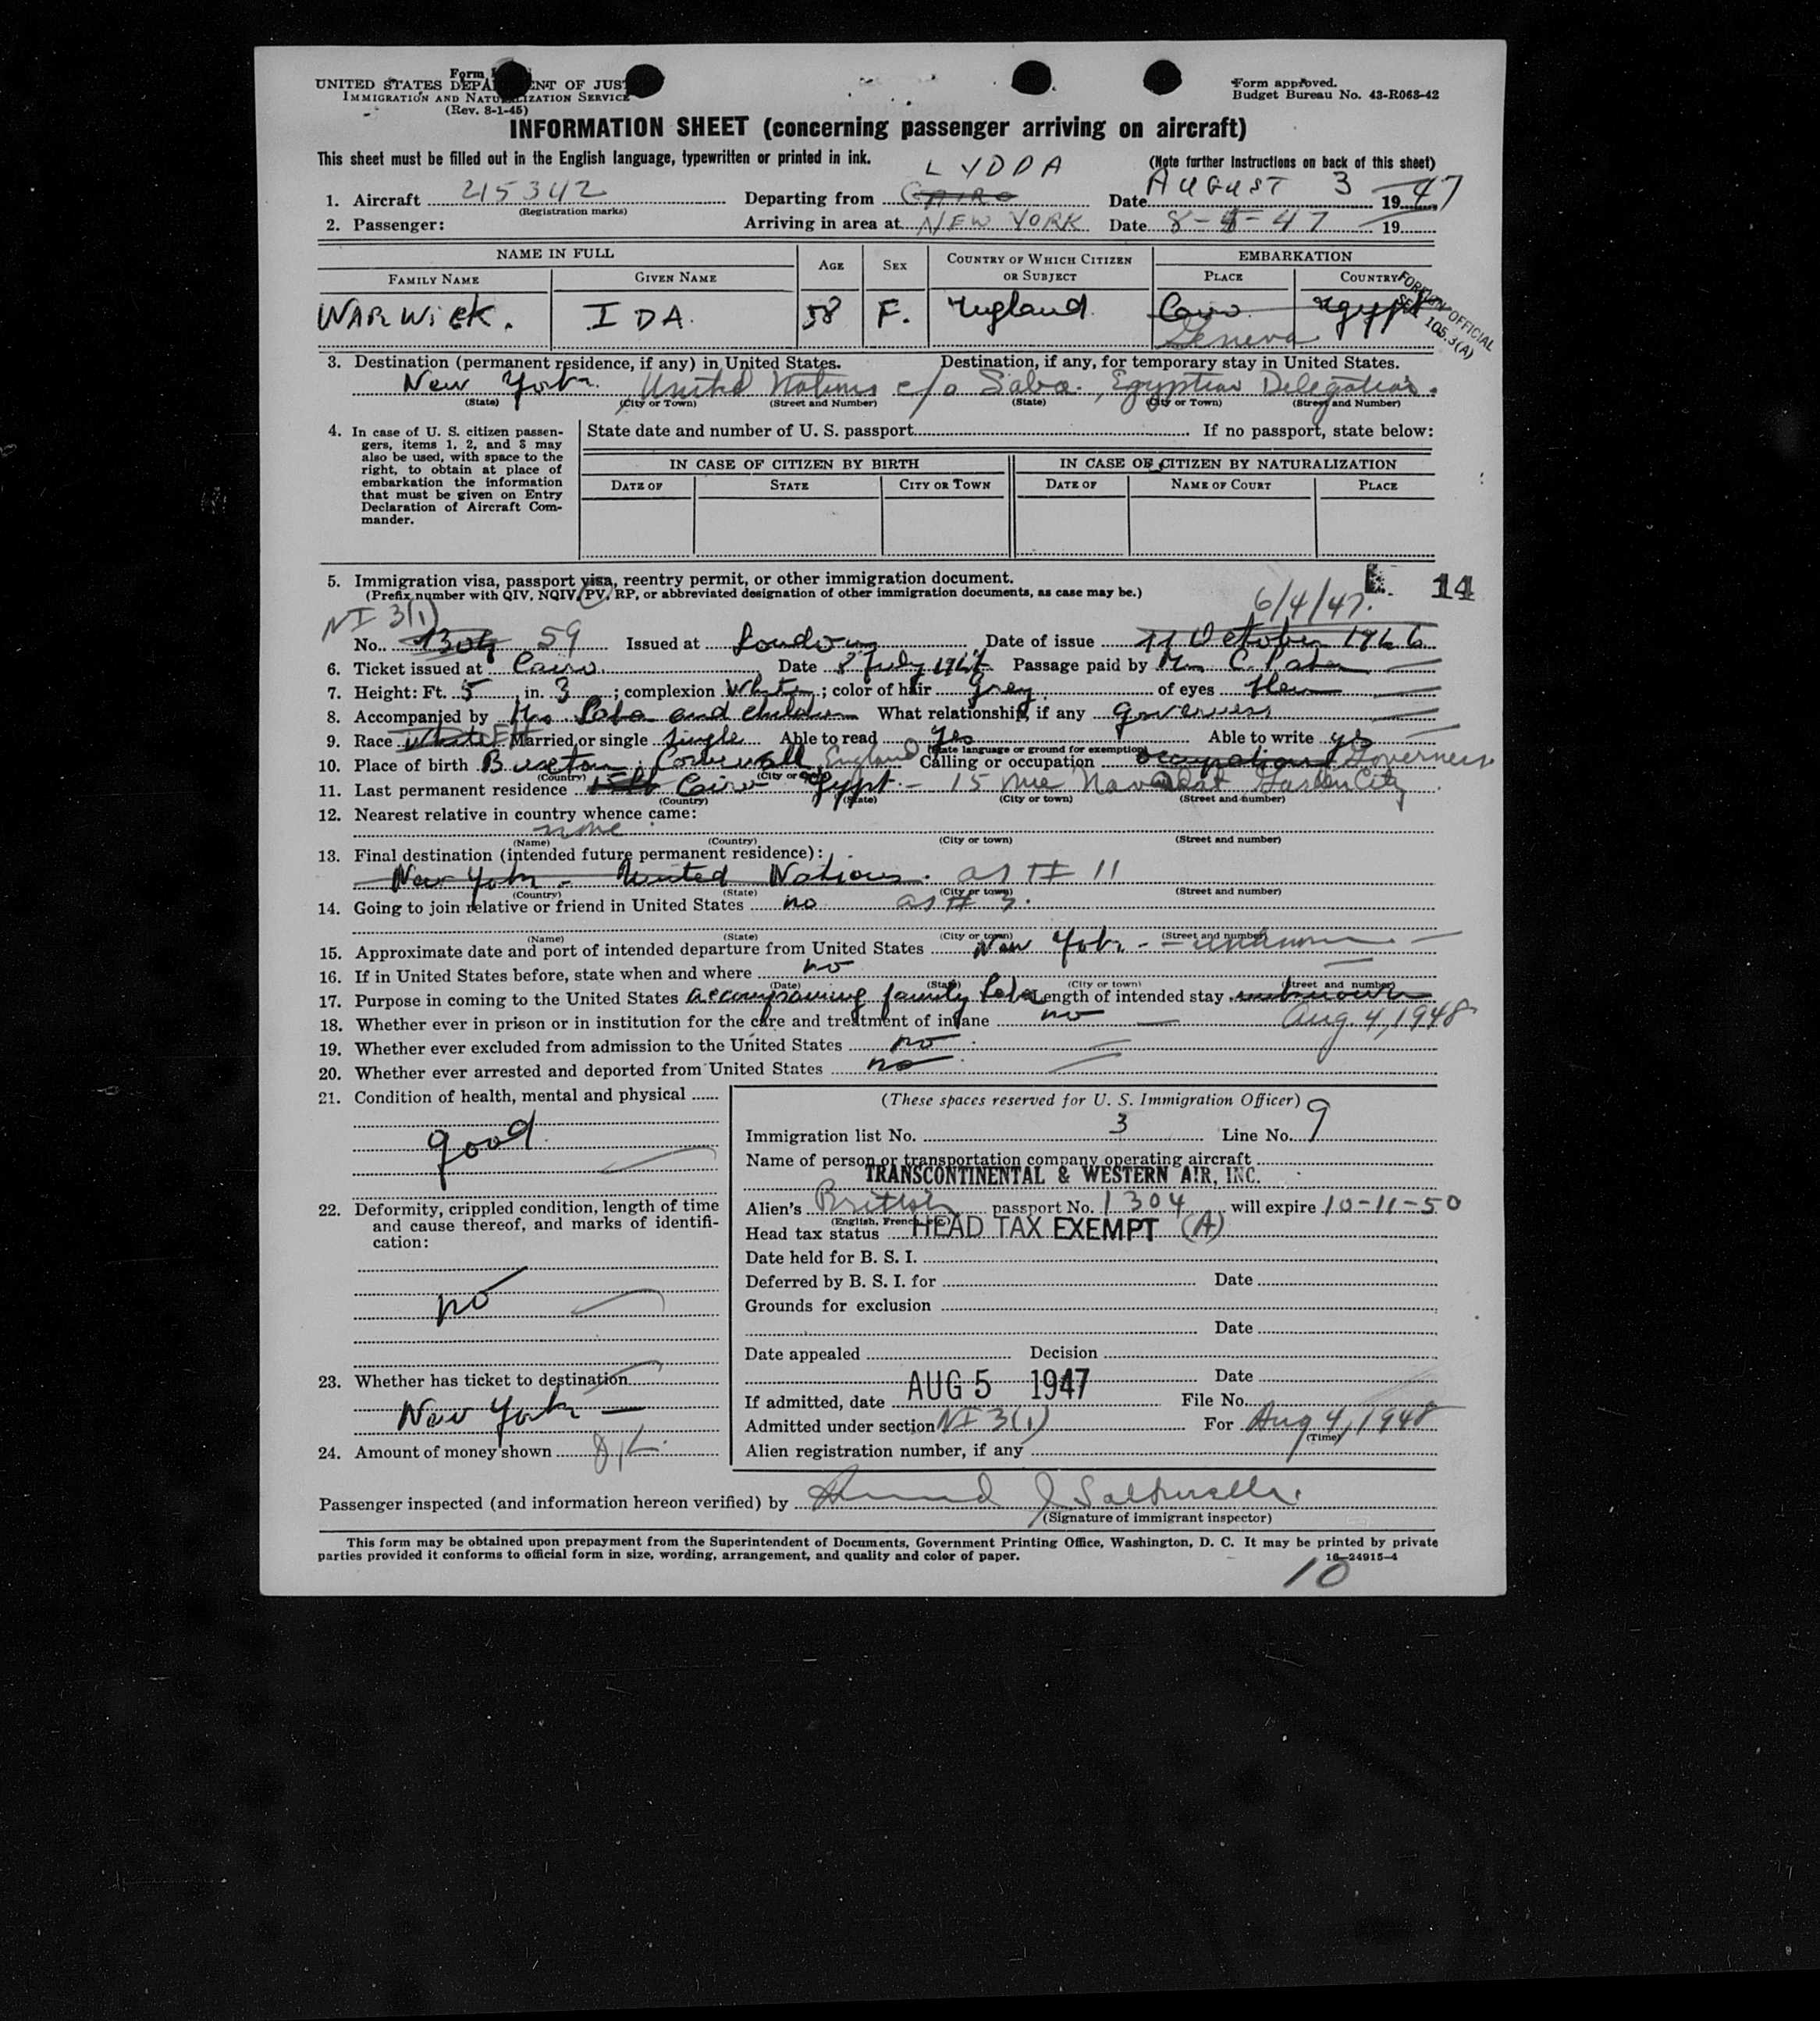 Form
UNITED STATES DEPARTMENT OF JUSTICE
IMMIGRATION AND NATURALIZATION SERVICE
(Rev. 8-1-45)
Form approved.
Budget Bureau No. 43-R063-42
INFORMATION SHEET (concerning passenger arriving on aircraft)
This sheet must be filled out in the English language, typewritten or printed in ink.
(Note further instructions on back of this sheet)
LYDDA
1. Aircraft 215342 Departing from CAIRO Date AUGUST 3 1947
(Registration marks)
2. Passenger: Arriving in area at NEW YORK Date 8-4-47 19
NAME IN FULL AGE SEX COUNTRY OF WHICH CITIZEN OR SUBJECT EMBARKATION
FAMILY NAME GIVEN NAME PLACE COUNTRY
FOREIGN OFFICIAL
SEC. 105.3(A)
WARWICK. IDA. 58 F. England. Cairo Egypt
Geneva
3. Destination (permanent residence, if any) in United States. Destination, if any, for temporary stay in United States.
New York. United Nations c/o Saba, Egyptian Delegation.
(State) (City or Town) (Street and Number) (State) (City or Town) (Street and Number)
4. In case of U. S. citizen passengers, items 1, 2, and 8 may also be used, with space to the right, to obtain at place of embarkation the information that must be given on Entry Declaration of Aircraft Commander.
State date and number of U. S. passport If no passport, state below:
IN CASE OF CITIZEN BY BIRTH IN CASE OF CITIZEN BY NATURALIZATION
DATE OF STATE CITY OR TOWN DATE OF NAME OF COURT PLACE
5. Immigration visa, passport visa, reentry permit, or other immigration document.
(Prefix number with QIV, NQIV, PV, RP, or abbreviated designation of other immigration documents, as case may be.)
14
NI 3(1) 6/4/47.
No. 1304 59 Issued at London Date of issue 11 October 1946
6. Ticket issued at Cairo Date 8 July 1947 Passage paid by Mr C. Saba
7. Height: Ft. 5, in. 3; complexion White; color of hair grey of eyes
8. Accompanied by Mrs Saba and children What relationship, if any governess
9. Race White Married or single single Able to read yes Able to write yes
(State language or ground for exemption)
10. Place of birth Cornwall England Calling or occupation occupation Governess
(Country) (City or town)
11. Last permanent residence Cairo Egypt - 15 rue Navadat Garden City
(Country) (State) (City or town) (Street and number)
12. Nearest relative in country whence came:
none
(Name) (Country) (City or town) (Street and number)
13. Final destination (intended future permanent residence):
New York - United Nations. as # 11
(Country) (State) (City or town) (Street and number)
14. Going to join relative or friend in United States no as # 3.
(Name) (State) (City or town) (Street and number)
15. Approximate date and port of intended departure from United States New York - unknown
16. If in United States before, state when and where no
(Date) (State) (City or town) (Street and number)
17. Purpose in coming to the United States accompanying family Saba Length of intended stay unknown
18. Whether ever in prison or in institution for the care and treatment of insane no Aug. 4, 1948
19. Whether ever excluded from admission to the United States no
20. Whether ever arrested and deported from United States no
21. Condition of health, mental and physical
good
22. Deformity, crippled condition, length of time and cause thereof, and marks of identification:
no
23. Whether has ticket to destination
New York
24. Amount of money shown
(These spaces reserved for U. S. Immigration Officer)
Immigration list No. 3 Line No. 9
Name of person or transportation company operating aircraft
TRANSCONTINENTAL & WESTERN AIR, INC.
Alien's British passport No. 1304 will expire 10-11-50
(English, French, etc.)
Head tax status HEAD TAX EXEMPT (A)
Date held for B. S. I.
Deferred by B. S. I. for Date
Grounds for exclusion
Date
Date appealed Decision
Date
If admitted, date AUG 5 1947 File No.
Admitted under section NI 3(1) For Aug 4, 1948
(Time)
Alien registration number, if any
Passenger inspected (and information hereon verified) by
(Signature of immigrant inspector)
This form may be obtained upon prepayment from the Superintendent of Documents, Government Printing Office, Washington, D. C. It may be printed by private
parties provided it conforms to official form in size, wording, arrangement, and quality and color of paper.
16-24915-4
10